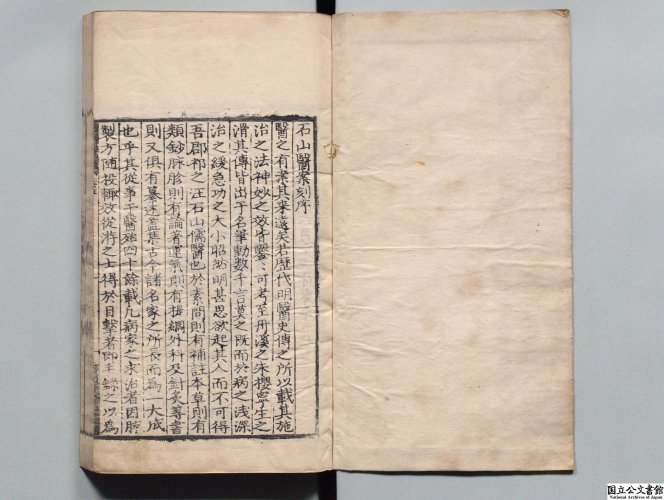 石山醫案刻序
醫之有案其來遠矣若歷代明醫史傳之所以載其施
治之法神妙之效皆鑿〻可考至丹溪之朱攖寧生之
滑其傳皆出于名筆動數千言莫之既而於病之浅深
治之緩急功之大小昭如明甚思欲起其人而不可得
吾郡祁之汪石山儒醫也於素問則有補註本草則有
類鈔脉胗則有論著運氣則有提綱外科及針灸等書
則又俱有纂述蓋集古今諸名家之所長而為一大成
也乎其從事于醫殆四十餘載凢病家之求治者因胗
製方随投輙效從游之士得於目擊者即手錄之以為
国立公文書館
National Archives of Japan